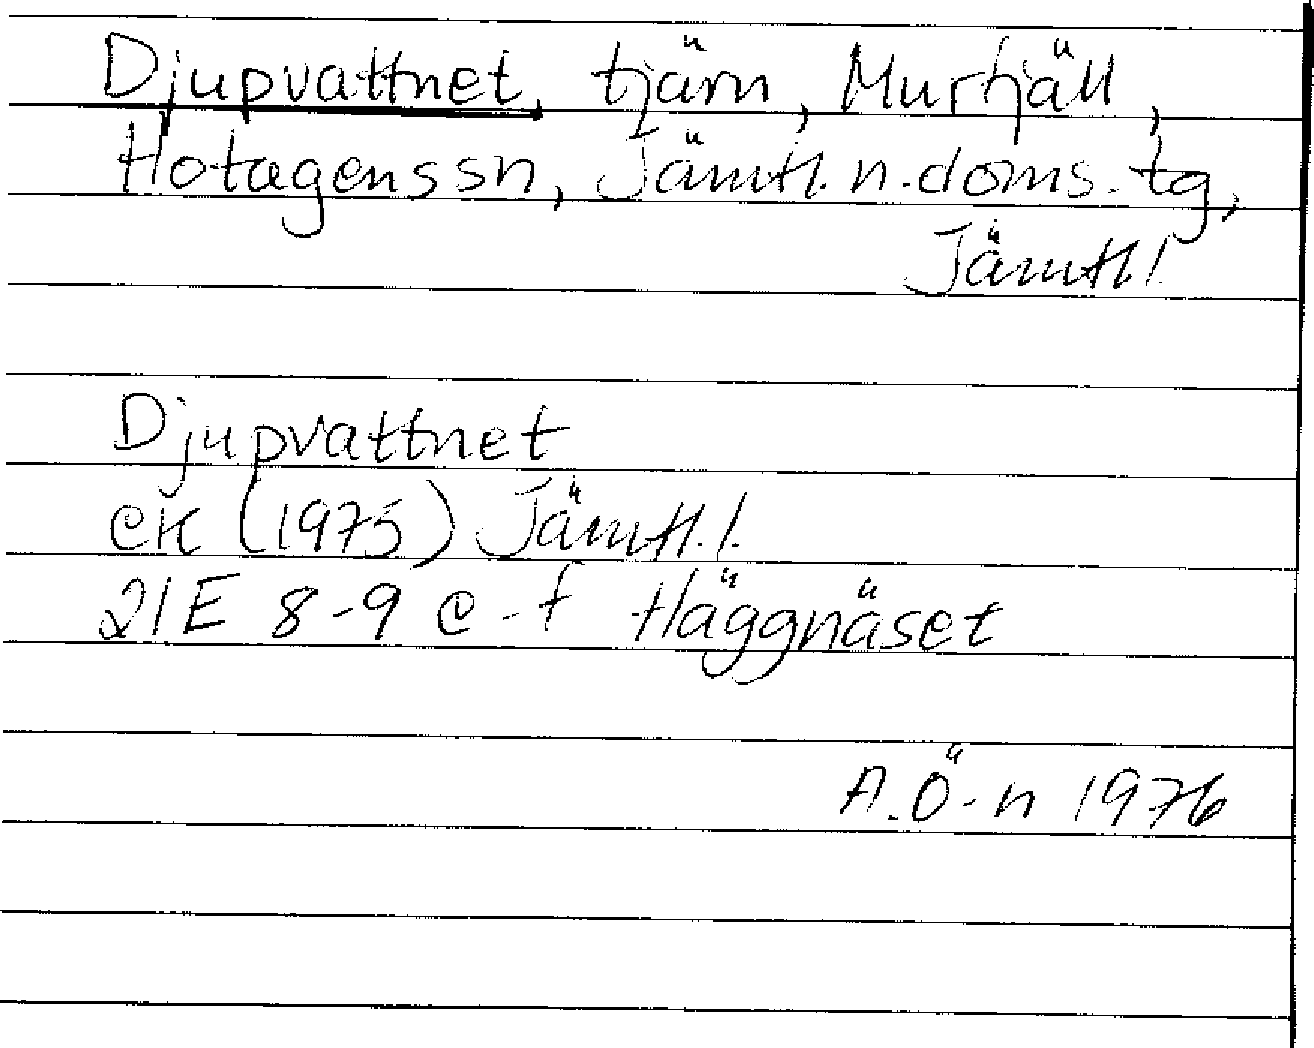 Djupvattnet, tjärn, Murfjäll,
Hotagens sn, Jämtl. n. doms. tg,
Jämtl.l
Djupvattnet
ek (1975) Jämtl. l.
21E 8-9 e-f Häggnäset
A.Ö-n 1976